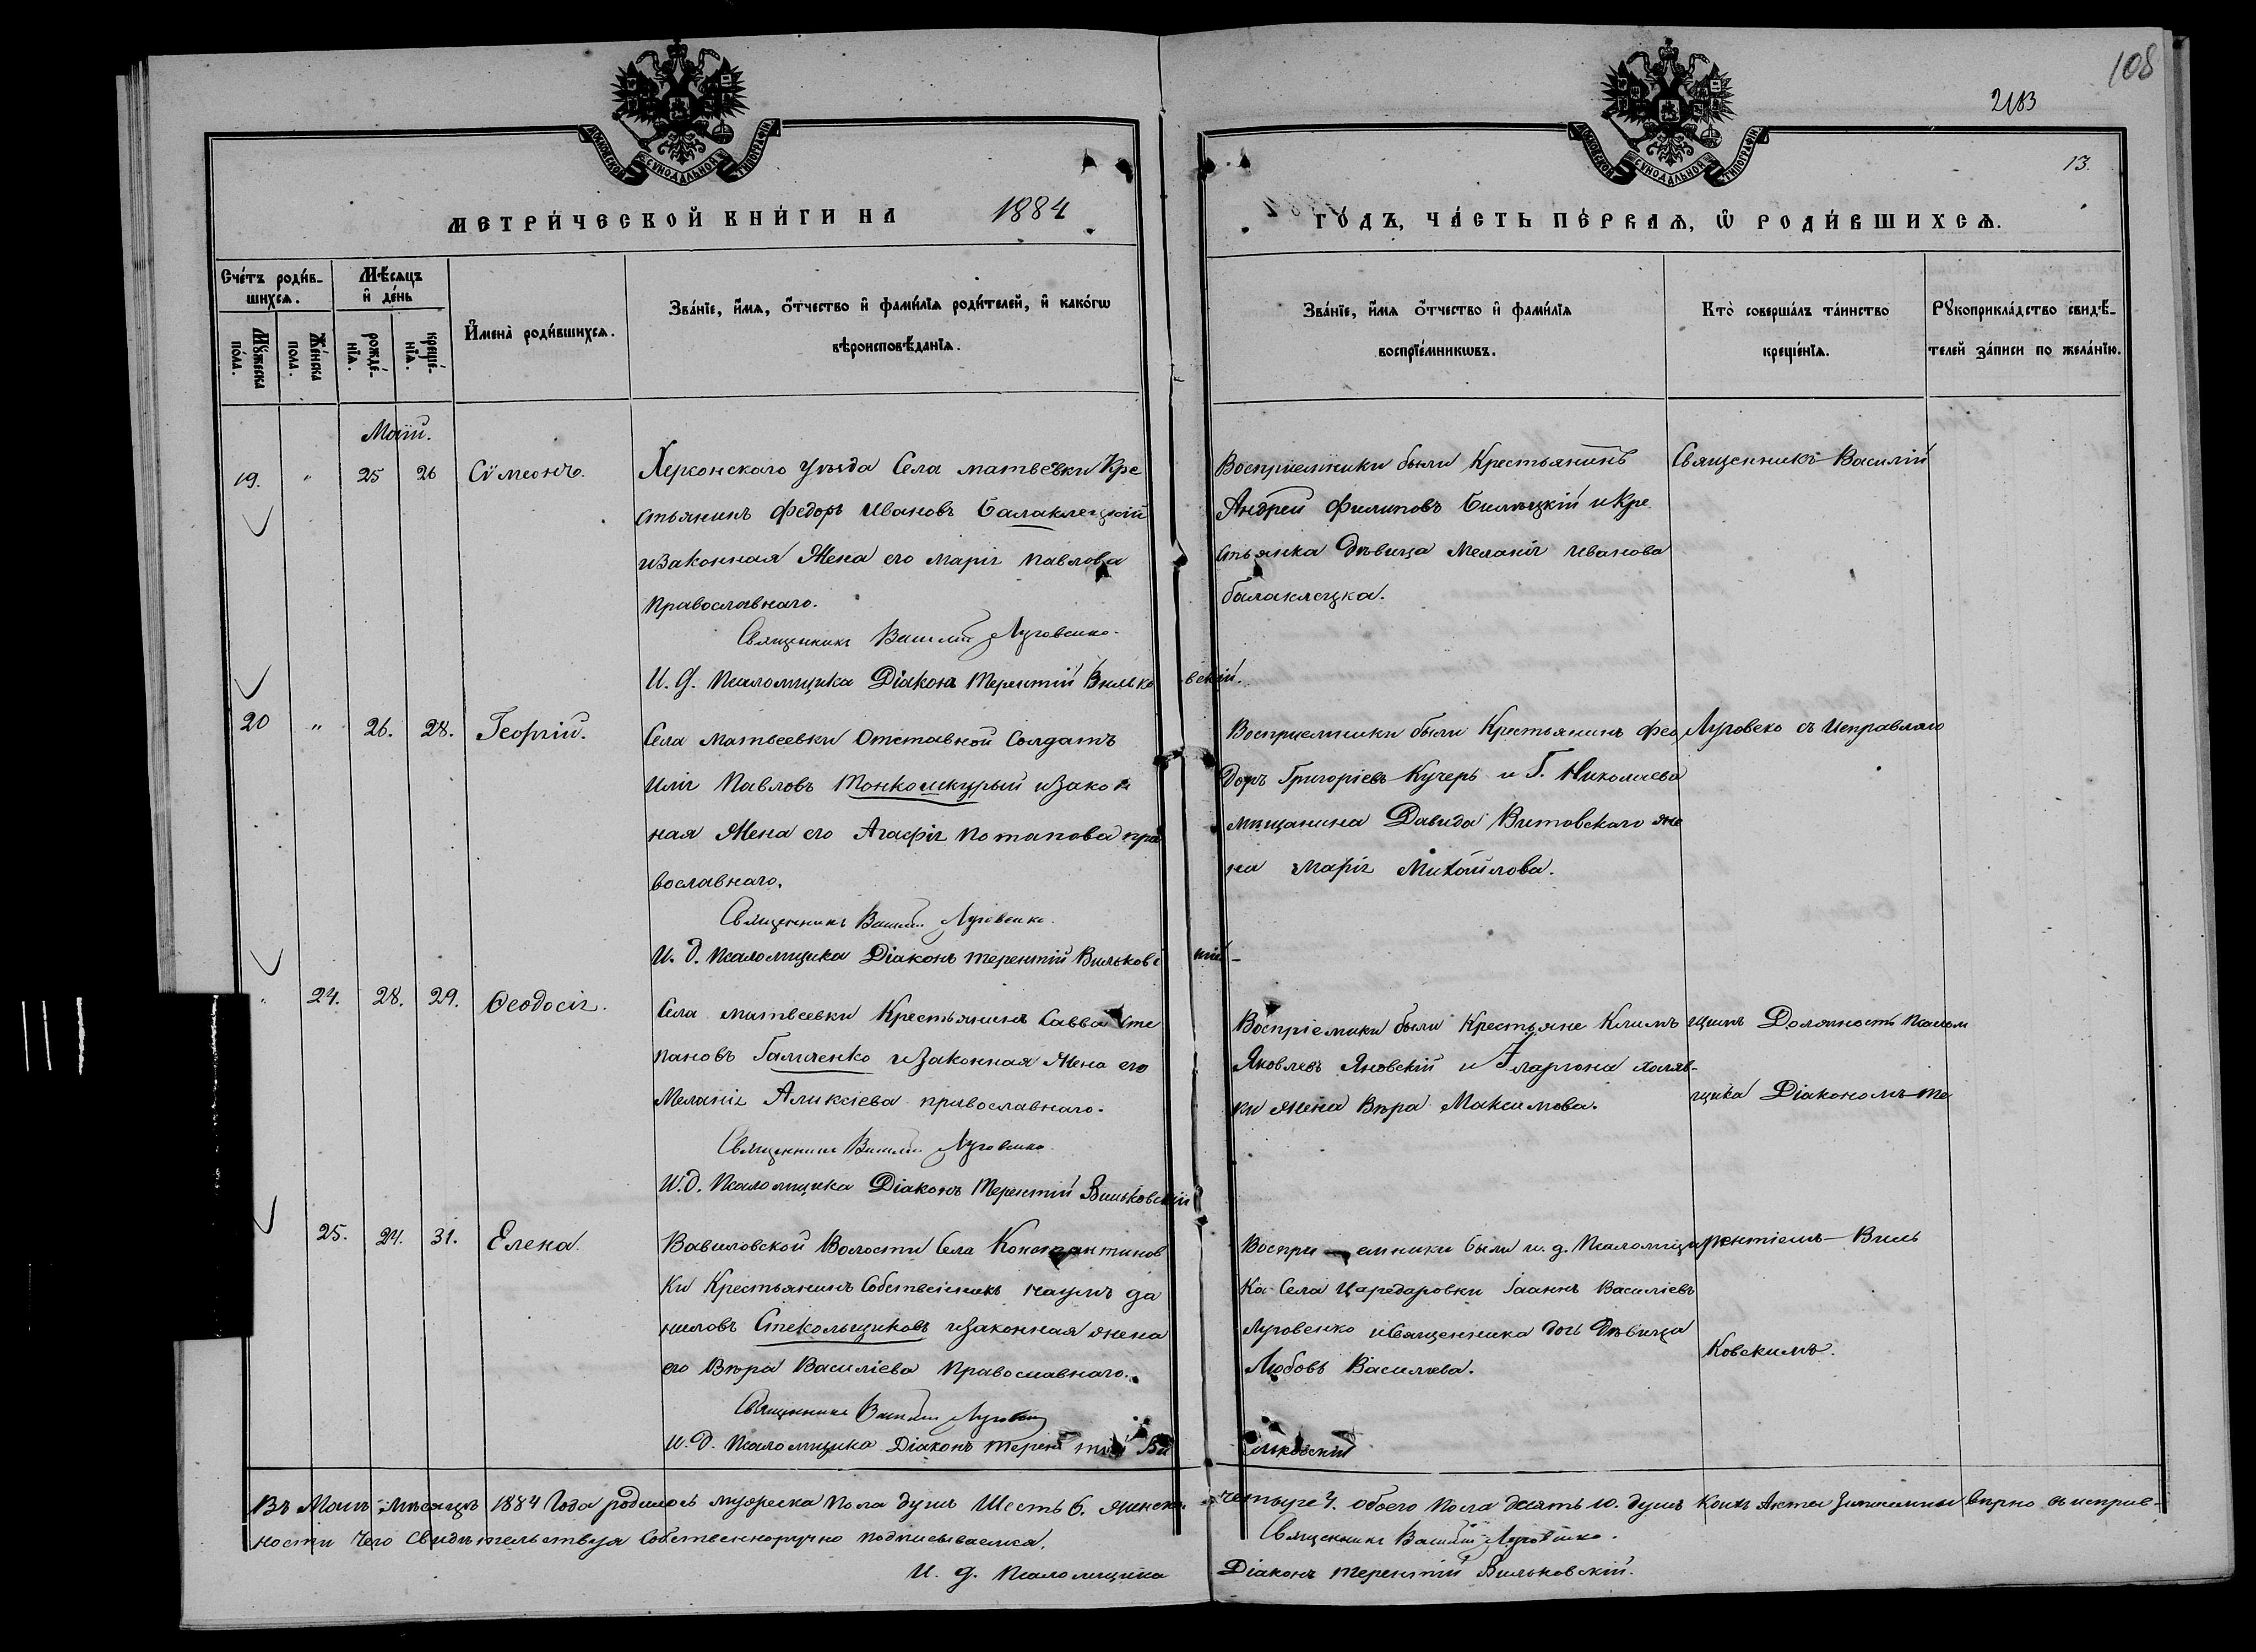 108
2183
13.
МОСКОВСКОЙ СѴНОДАЛЬНОЙ ТИПОГРАФІИ
МОСКОВСКОЙ СѴНОДАЛЬНОЙ ТИПОГРАФІИ
МЕТРИ́ЧЕСКОЙ КНИ́ГИ НА 1884
ГО́ДЪ, ЧА́СТЬ ПЕ́РВАѦ, Ѿ РОДИ́ВШИХСѦ.
Сче́тъ роди́в-
шихсѧ.
Мѣ́сѧцъ
и҆ де́нь
Мꙋ́жеска
по́ла.
Же́нска
пола.
рожде́-
нїѧ.
креще́-
нїѧ.
И҆мена̀ роди́вшихсѧ.
Зва́нїе, и҆́мѧ, ѻ҆́тчество и҆ фами́лїѧ роди́телей, и҆ како́гѡ
вѣроисповѣ́данїѧ.
Зва́нїе, и҆́мѧ ѻ҆́тчество и҆ фами́лїѧ
воспрїе́мникѡвъ.
Кто̀ соверша́лъ та́инство
креще́нїѧ.
Рꙋкоприкла́дство свидѣ́-
телей за́писи по жела́нїю.
Маій.
19. " 25 26 Сѵмеонъ.
Херсонскаго Уѣзда Села матвеѣвки Кре
стьянинъ Федоръ Ивановъ Балаклецкій
и Законная Жена его Марія Павлова
Православнаго.
Священникъ Василій Луговенко.
И. д. Псаломщика Діаконъ Терентій Вильковскій.
Восприемники были Крестьянинъ
Андрей Филиповъ Билецкій и Кре
стьянка Дѣвица Меланія Иванова
балаклецка.
Священникъ Василій
20 " 26. 28. Георгій.
Села Матвеевки Отставной Солдатъ
Илія Павловъ Тонкошкурый и Закон
ная Жена его Агафія Потапова пра
вославнаго.
Священникъ Василій Луговенко.
И. д. Псаломщика Діаконъ Терентій Вильковскій
Восприемники были Крестьянинъ Фео
доръ Григоріевъ Кучеръ и Г. Николаева
мѣщанина Давида Витовскаго же
на Марія Михайлова.
Луговеко съ Исправляю
" 24. 28. 29. Ѳеодосія.
Села Матвеевки Крестьянинъ Савва Сте
пановъ Галиченко и Законная Жена его
Меланія Аликсіева православнаго.
Священникъ Василій Луговенко
И. д. Псаломщика Діаконъ Терентій Вильковскій
Воспріемики были Крестьяне Климъ
Яковлевъ Яновскій и Иларіона халяв-
ки жена Вѣра Максимова.
щимъ Должность Псалом
щика Діакономъ Те
25. 24. 31. Елена.
Вавиловской Волости Села Константинов
ки Крестьянинъ Собственникъ Наумъ Да
ниловъ Стекольщиковъ и Законная жена
его Вѣра Василіева Православнаго.
Священникъ Василій Луговенко
И. д. Псаломщика Діаконъ Терентій Вильковскій
Восприемники были и. д. Псаломщи
ка Села Царедаровки Іаанъ Василіевъ
Луговенко и Священника дочь Дѣвица
Любовь Василіева.
рентіемъ Виль
ковскимъ.
Въ Маіѣ мѣсяцѣ 1884 Года родилось мужеска Пола душъ Шесть 6. женска четыре 4. обоего Пола десять 10. душъ Коихъ Акты Записаны вѣрно въ исправ-
ности Чего Свидѣтельствуя Собственноручно Подписываемся.
Священникъ Василій Луговенко.
И. д. Псаломщика Діаконъ Терентій Вильковскій.